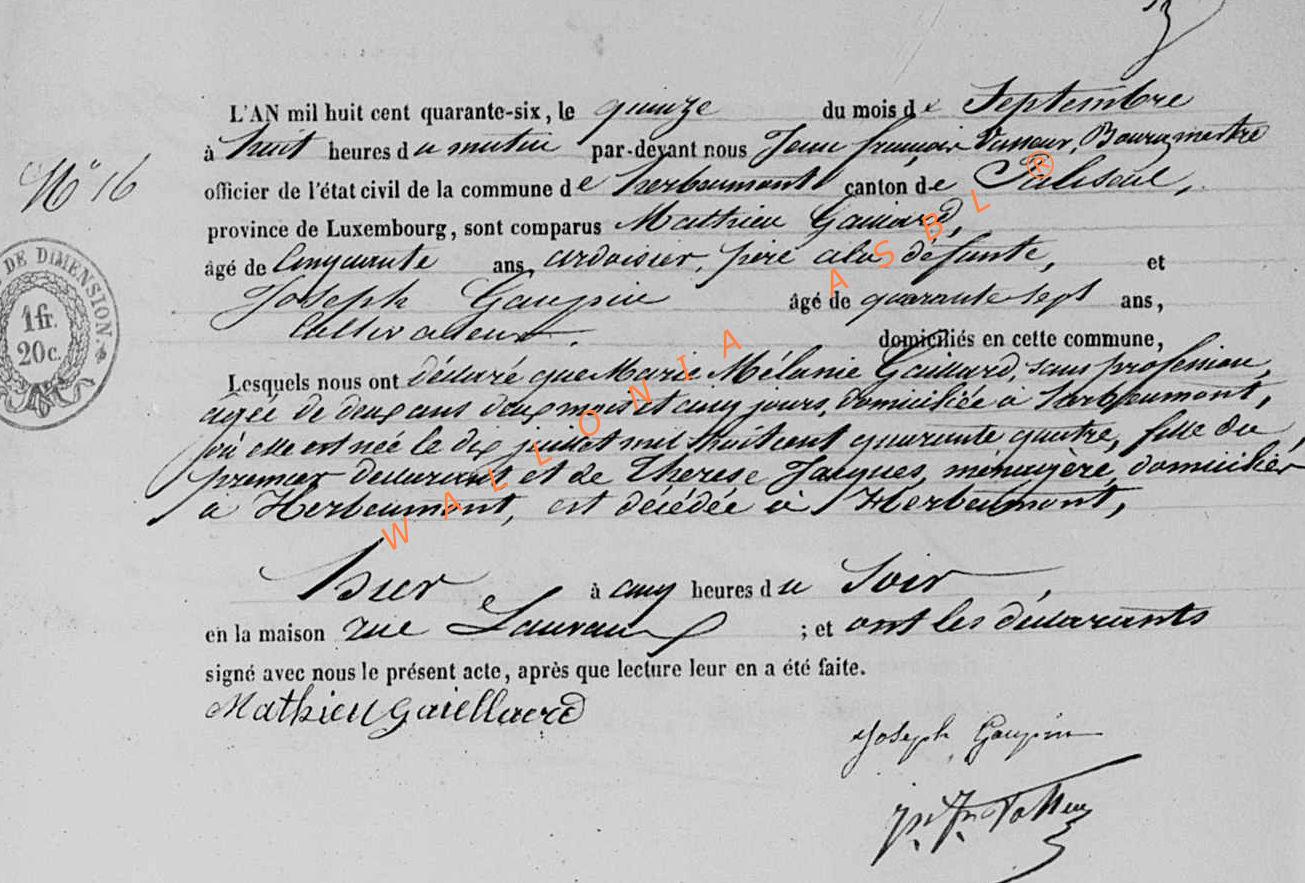 L'AN mil huit cent quarante-six, le quinze du mois de Septembre
N° 16
à huit heures du matin par-devant nous Jean françois Bourgmestre
officier de l'état civil de la commune de herbeumont canton de Paliseul,
province de Luxembourg, sont comparus Mathieu Gaillard,
âgé de Cinquante ans, ardoisier, père à la défunte, et
Joseph Gaupin âgé de quarante sept ans,
Cultivateur. domiciliés en cette commune,
Lesquels nous ont déclaré que Marie Mélanie Gaillard, sans profession,
agée de deux ans deux mois et cinq jours, domiciliée à herbeumont,
où elle est née le dix juillet mil huit cent quarante quatre, fille du
premier déclarant et de Thérèse Jacques, ménagère, domiciliés
à Herbeumont, est décédée à Herbeumont,
hier à cinq heures du Soir
en la maison rue ; et ont les déclarants
signé avec nous le présent acte, après que lecture leur en a été faite.
Mathieu Gaiellard
Joseph Gaupin
DE DIMENSION.
1 fr.
20 c.
WALLONIA ASBL ®